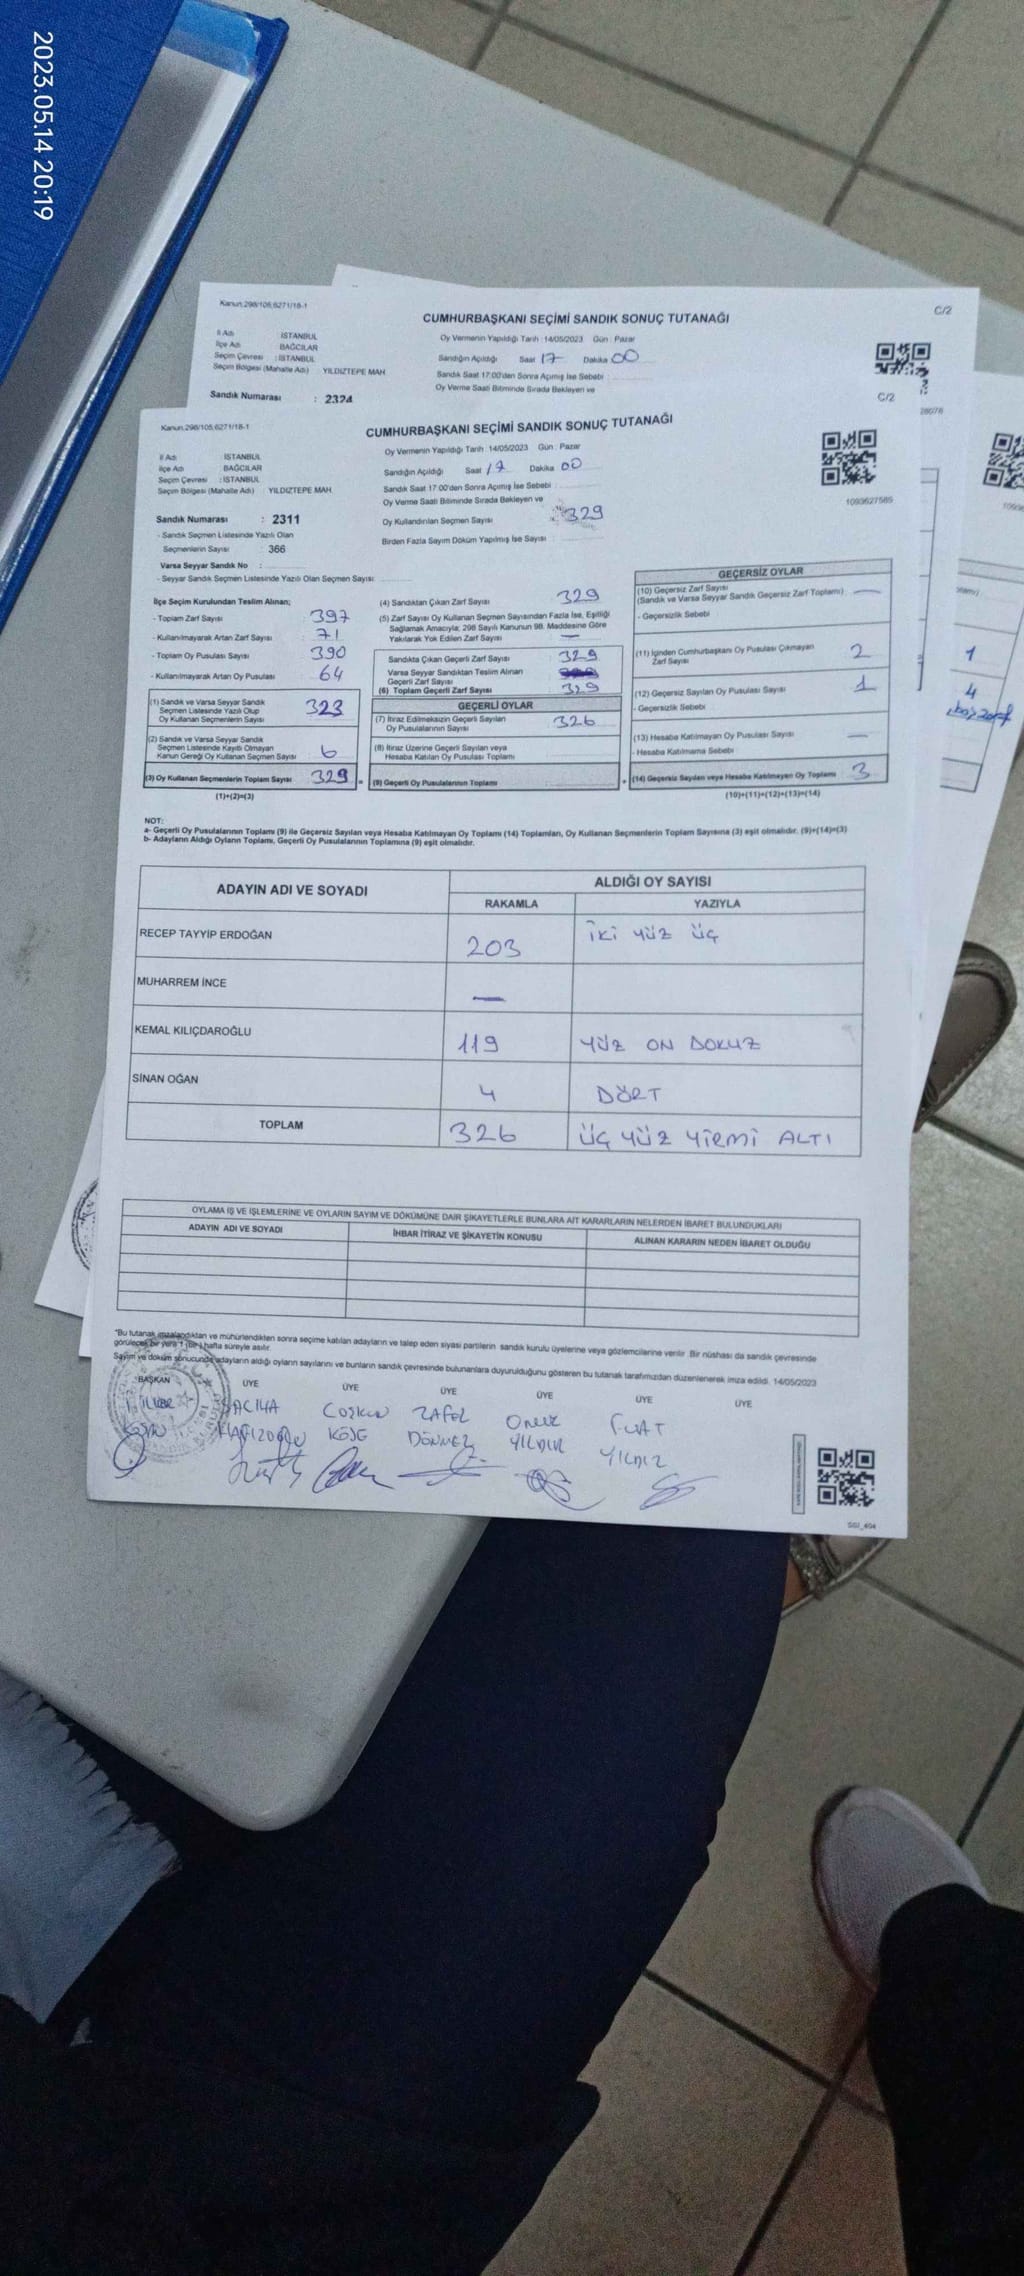 2023.05.14 20:19
Kanun:298/105,6271/18-1
C/2
CUMHURBAŞKANI SEÇİMİ SANDIK SONUÇ TUTANAĞI
İl Adı İSTANBUL
İlçe Adı BAĞCILAR
Seçim Çevresi : İSTANBUL
Seçim Bölgesi (Mahalle Adı) YILDIZTEPE MAH
Sandık Numarası : 2324
Oy Vermenin Yapıldığı Tarih : 14/05/2023 Gün : Pazar
Sandığın Açıldığı Saat 17 Dakika 00
Sandık Saat 17:00'den Sonra Açımış İse Sebebi
Oy Verme Saati Bitiminde Sırada Bekleyen ve
28076
Kanun:298/105,6271/18-1
C/2
CUMHURBAŞKANI SEÇİMİ SANDIK SONUÇ TUTANAĞI
İl Adı İSTANBUL
İlçe Adı BAĞCILAR
Seçim Çevresi : İSTANBUL
Seçim Bölgesi (Mahalle Adı) YILDIZTEPE MAH
Sandık Numarası : 2311
- Sandık Seçmen Listesinde Yazılı Olan
Seçmenlerin Sayısı : 366
Varsa Seyyar Sandık No :
- Seyyar Sandık Seçmen Listesinde Yazılı Olan Seçmen Sayısı:
Oy Vermenin Yapıldığı Tarih : 14/05/2023 Gün : Pazar
Sandığın Açıldığı Saat 17 Dakika 00
Sandık Saat 17:00'den Sonra Açımış İse Sebebi :
Oy Verme Saati Bitiminde Sırada Bekleyen ve
Oy Kullandırılan Seçmen Sayısı 329
Birden Fazla Sayım Döküm Yapılmış İse Sayısı :
1093627585
İlçe Seçim Kurulundan Teslim Alınan;
- Toplam Zarf Sayısı 397
- Kullanılmayarak Artan Zarf Sayısı 71
- Toplam Oy Pusulası Sayısı 390
- Kullanılmayarak Artan Oy Pusulası 64
(1) Sandık ve Varsa Seyyar Sandık
Seçmen Listesinde Yazılı Olup
Oy Kullanan Seçmenlerin Sayısı 323
(2) Sandık ve Varsa Seyyar Sandık
Seçmen Listesinde Kayıtlı Olmayan
Kanun Gereği Oy Kullanan Seçmen Sayısı 6
(3) Oy Kullanan Seçmenlerin Toplam Sayısı 329
(1)+(2)=(3)
(4) Sandıktan Çıkan Zarf Sayısı 329
(5) Zarf Sayısı Oy Kullanan Seçmen Sayısından Fazla İse, Eşitliği
Sağlamak Amacıyla; 298 Sayılı Kanunun 98. Maddesine Göre
Yakılarak Yok Edilen Zarf Sayısı —
Sandıkta Çıkan Geçerli Zarf Sayısı 329
Varsa Seyyar Sandıktan Teslim Alınan
Geçerli Zarf Sayısı
(6) Toplam Geçerli Zarf Sayısı 329
GEÇERLİ OYLAR
(7) İtiraz Edilmeksizin Geçerli Sayılan
Oy Pusulalarının Sayısı 326
(8) İtiraz Üzerine Geçerli Sayılan veya
Hesaba Katılan Oy Pusulası Toplamı
(9) Geçerli Oy Pusulalarının Toplamı
GEÇERSİZ OYLAR
(10) Geçersiz Zarf Sayısı
(Sandık ve Varsa Seyyar Sandık Geçersiz Zarf Toplamı) —
- Geçersizlik Sebebi
(11) İçinden Cumhurbaşkanı Oy Pusulası Çıkmayan
Zarf Sayısı 2
(12) Geçersiz Sayılan Oy Pusulası Sayısı 1
- Geçersizlik Sebebi
(13) Hesaba Katılmayan Oy Pusulası Sayısı —
- Hesaba Katılmama Sebebi
(14) Geçersiz Sayılan veya Hesaba Katılmayan Oy Toplamı 3
(10)+(11)+(12)+(13)=(14)
1
4
NOT:
a- Geçerli Oy Pusulalarının Toplamı (9) ile Geçersiz Sayılan veya Hesaba Katılmayan Oy Toplamı (14) Toplamları, Oy Kullanan Seçmenlerin Toplam Sayısına (3) eşit olmalıdır. (9)+(14)=(3)
b- Adayların Aldığı Oyların Toplamı, Geçerli Oy Pusulalarının Toplamına (9) eşit olmalıdır.
ADAYIN ADI VE SOYADI ALDIĞI OY SAYISI
RAKAMLA YAZIYLA
RECEP TAYYİP ERDOĞAN 203 İKİ YÜZ ÜÇ
MUHARREM İNCE —
KEMAL KILIÇDAROĞLU 119 YÜZ ON DOKUZ
SİNAN OĞAN 4 DÖRT
TOPLAM 326 ÜÇ YÜZ YİRMİ ALTI
OYLAMA İŞ VE İŞLEMLERİNE VE OYLARIN SAYIM VE DÖKÜMÜNE DAİR ŞİKAYETLERLE BUNLARA AİT KARARLARIN NELERDEN İBARET BULUNDUKLARI
ADAYIN ADI VE SOYADI İHBAR İTİRAZ VE ŞİKAYETİN KONUSU ALINAN KARARIN NEDEN İBARET OLDUĞU
*Bu tutanak imzalandıktan ve mühürlendikten sonra seçime katılan adayların ve talep eden siyasi partilerin sandık kurulu üyelerine veya gözlemcilerine verilir. Bir nüshası da sandık çevresinde
görülecek bir yere 1 (bir) hafta süreyle asılır.
Sayım ve döküm sonucunda adayların aldığı oyların sayılarını ve bunların sandık çevresinde bulunanlara duyurulduğunu gösteren bu tutanak tarafımızdan düzenlenerek imza edildi. 14/05/2023
BAŞKAN ÜYE ÜYE ÜYE ÜYE ÜYE ÜYE
COŞKUN ZAFER ONUR FUAT
KÖSE DÖNMEZ YILDIR YILDIZ